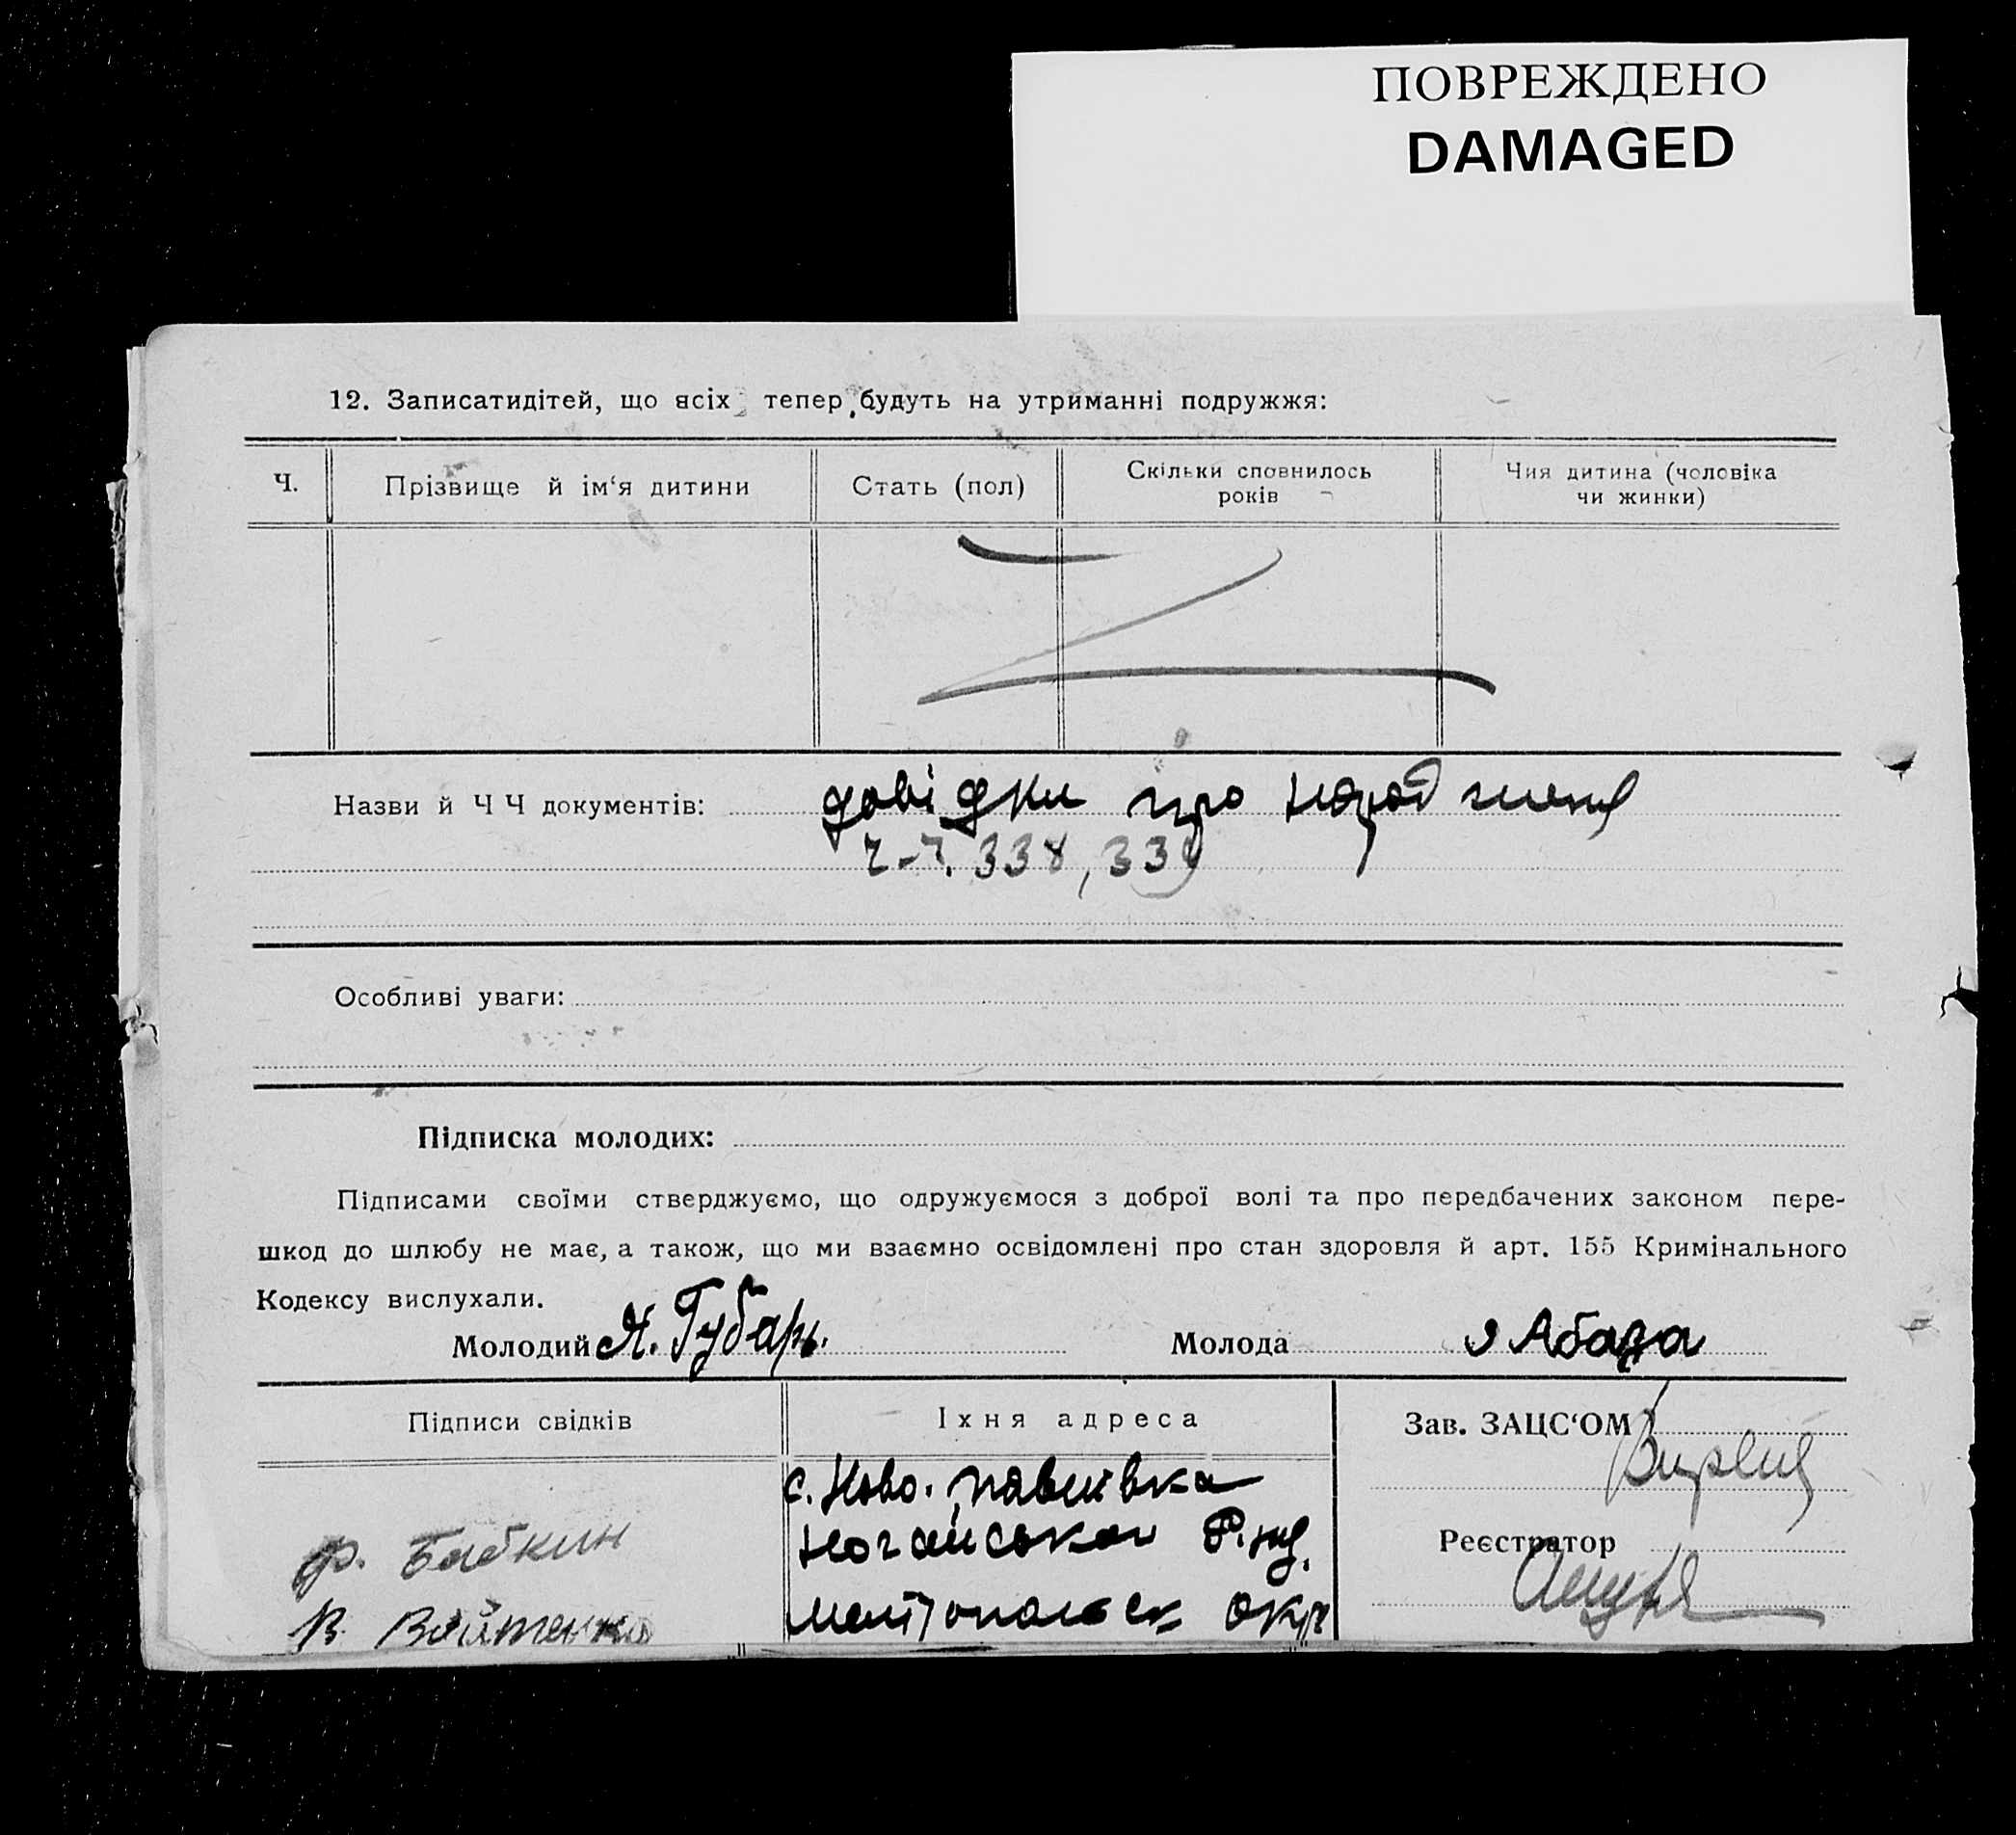 ПОВРЕЖДЕНО
DAMAGED
12. Записатидітей, що всіх тепер будуть на утриманні подружжя:
Ч.
Прізвище й ім‘я дитини
Стать (пол)
Скільки сповнилось
років
Чия дитина (чоловіка
чи жинки)
Назви й Ч Ч документів: довідки про народження
ч-ч. 338, 339
Особливі уваги:
Підписка молодих:
Підписами своїми стверджуємо, що одружуємося з доброї волі та про передбачених законом пере-
шкод до шлюбу не має, а також, що ми взаємно освідомлені про стан здоровля й арт. 155 Кримінального
Кодексу вислухали.
Молодий Я. Губарь.
Молода Абаза
Підписи свідків
Ф. Бабкин
В. Войтенко
Їхня адреса
с. Ново. павлівка
Ногайського Р.ну.
мелітопольск окр
Зав. ЗАЦС‘ОМ
Реєстратор